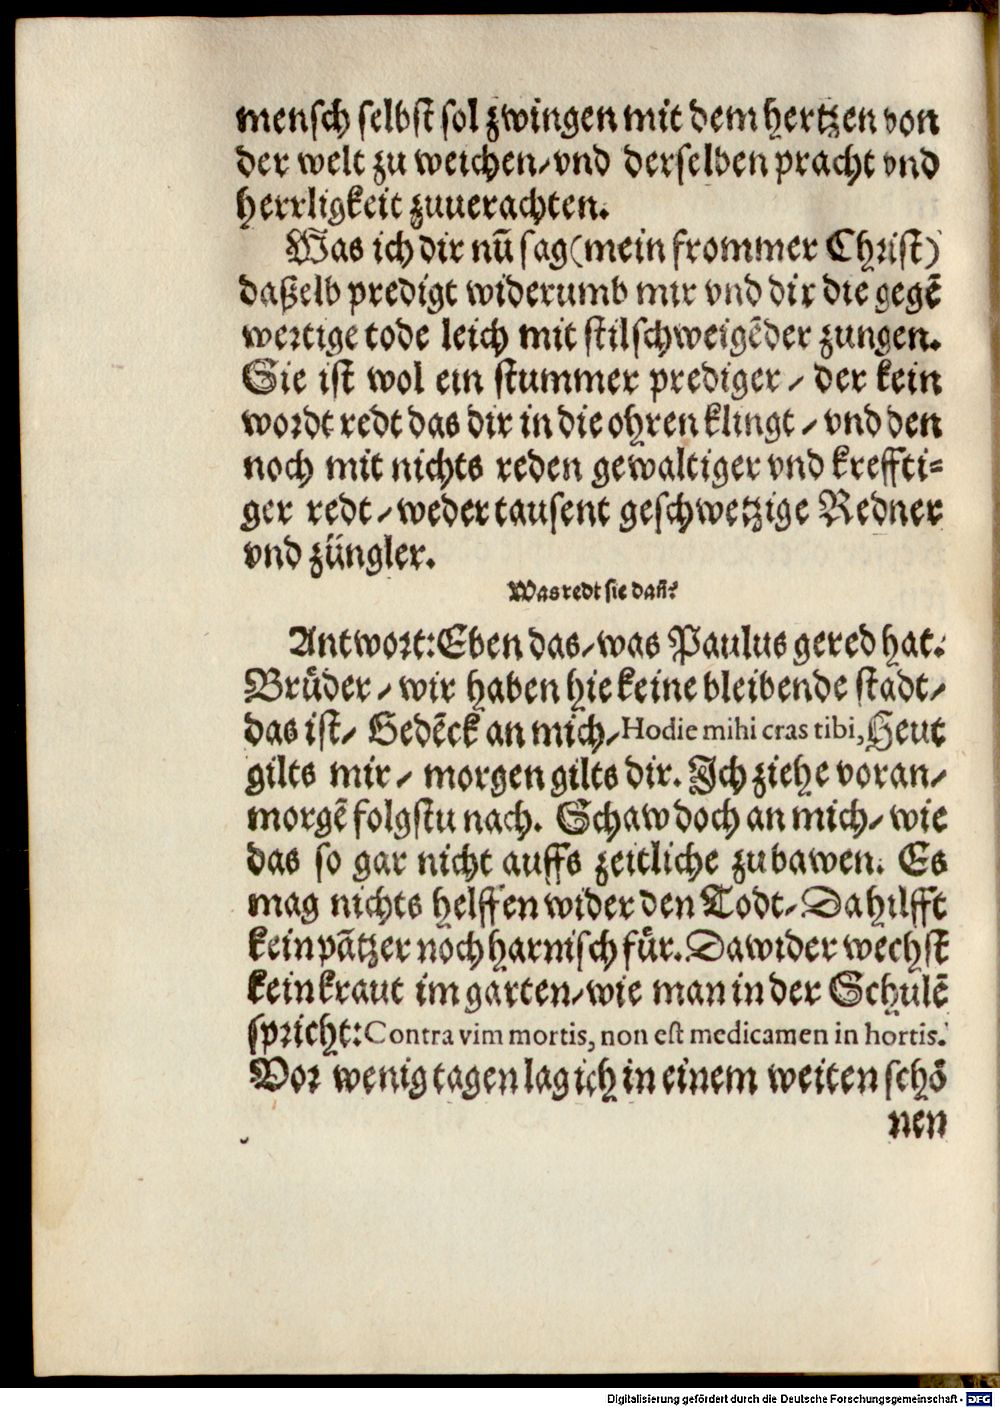 mensch selbst sol zwingen mit dem hertzen von
der welt zu weichen/ vnd derselben pracht vnd
herrligkeit zuuerachten.
Was ich dir nū sag (mein frommer Christ)
daßelb predigt widerumb mir vnd dir die gegē
wertige tode leich mit stilschweigēder zungen.
Sie ist wol ein stummer prediger / der kein
wordt redt das dir in die ohren klingt / vnd den
noch mit nichts reden gewaltiger vnd kreffti=
ger redt / weder tausent geschwetzige Redner
vnd züngler.
Was redt sie dañ?
Antwort: Eben das/ was Paulus gered hat:
Brůder / wir haben hie keine bleibende stadt/
das ist/ Gedēck an mich/ Hodie mihi cras tibi, Heut
gilts mir / morgen gilts dir. Ich ziehe voran/
morgē folgstu nach. Schaw doch an mich/ wie
das so gar nicht auffs zeitliche zubawen. Es
mag nichts helffen wider den Todt/ Da hilfft
kein pātzer noch harnisch fůr. Dawider wechst
kein kraut im garten/ wie man in der Schulē
spricht: Contra vim mortis, non est medicamen in hortis.
Vor wenig tagen lag ich in einem weiten schō
nen
Digitalisierung gefördert durch die Deutsche Forschungsgemeinschaft - DFG